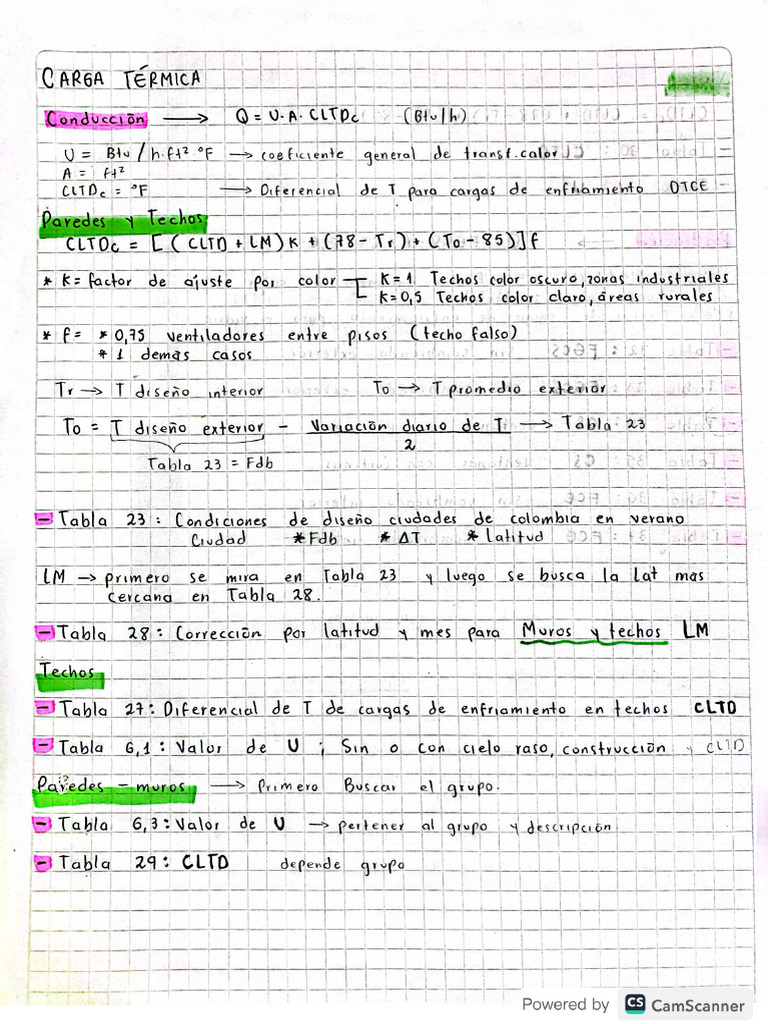 CARGA TÉRMICA
Conducción ⟶ Q = U·A·CLTDc (Btu/h)
U = Btu/h·ft²·°F → coeficiente general de transf. calor
A = ft²
CLTDc = °F → Diferencial de T para cargas de enfriamiento DTCE
Paredes y Techos
CLTDc = [(CLTD + LM)K + (78 - Tr) + (To - 85)]f
* K = factor de ajuste por color K=1 Techos color oscuro, zonas industriales
K=0,5 Techos color claro, áreas rurales
* f = * 0,75 ventiladores entre pisos (techo falso)
* 1 demas casos
Tr → T diseño interior To → T promedio exterior
To = T diseño exterior - Variación diario de T → Tabla 23
2
Tabla 23 = Fdb
- Tabla 23: Condiciones de diseño ciudades de colombia en verano
Ciudad * Fdb * ΔT * latitud
LM → primero se mira en Tabla 23 y luego se busca la lat mas
cercana en Tabla 28.
- Tabla 28: Corrección por latitud y mes para Muros y techos LM
Techos
- Tabla 27: Diferencial de T de cargas de enfriamiento en techos CLTD
- Tabla 6,1: Valor de U ; Sin o con cielo raso, construcción y CLTD
Paredes - muros → Primero Buscar el grupo.
- Tabla 6,3: Valor de U → pertener al grupo y descripción
- Tabla 29: CLTD depende grupo
Powered by CS CamScanner